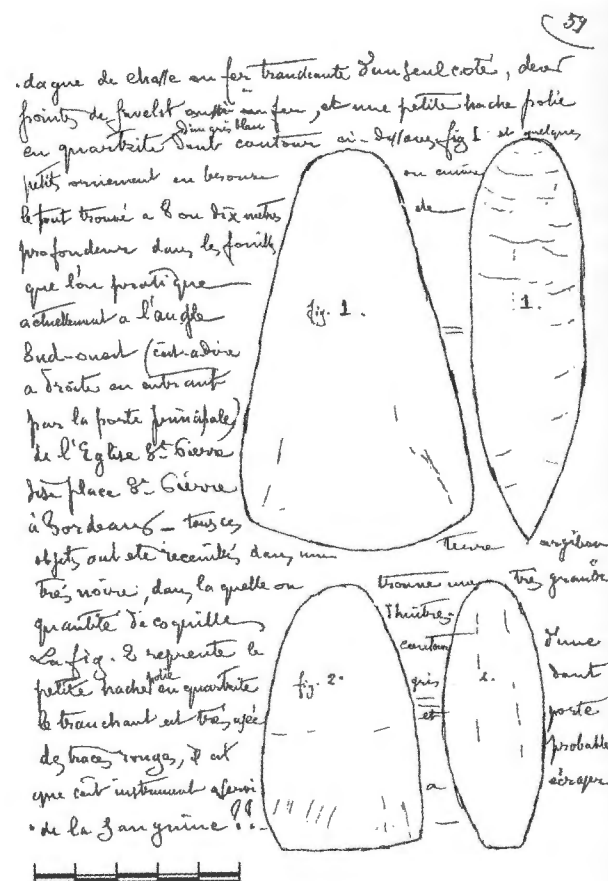 59
dague de chasse en fer tranchante d'un seul coté, deux
points de javelot aussi en fer, et une petite hache polie
d'un gris blanc
en quartzite dont contour ci-dessous fig 1 et quelques
petits orniement en bronze ou cuivre
le tout trouvé a 8 ou dix metres de
profondeur dans les fouilles
que l'on pratique
actuellement a l'angle
Sud-ouest (c'est-a-dire
a droite en entrant
par la porte principale)
de l'Eglise St Pierre
place St Pierre
à Bordeaux - tous ces
objets ont été receuillis dans une terre argileuse
très noire, dans la quelle on trouve une très grande
quantité de coquilles d'huitres
La fig. 2 reprente la contour d'une
polie
petite hache en quartzite gris dont
le tranchant est très usé et porte
des traces rouges, il est probable
que cet instrument a servi a écraser
de la Sanguine ??
fig. 1.
1.
fig. 2.
2.